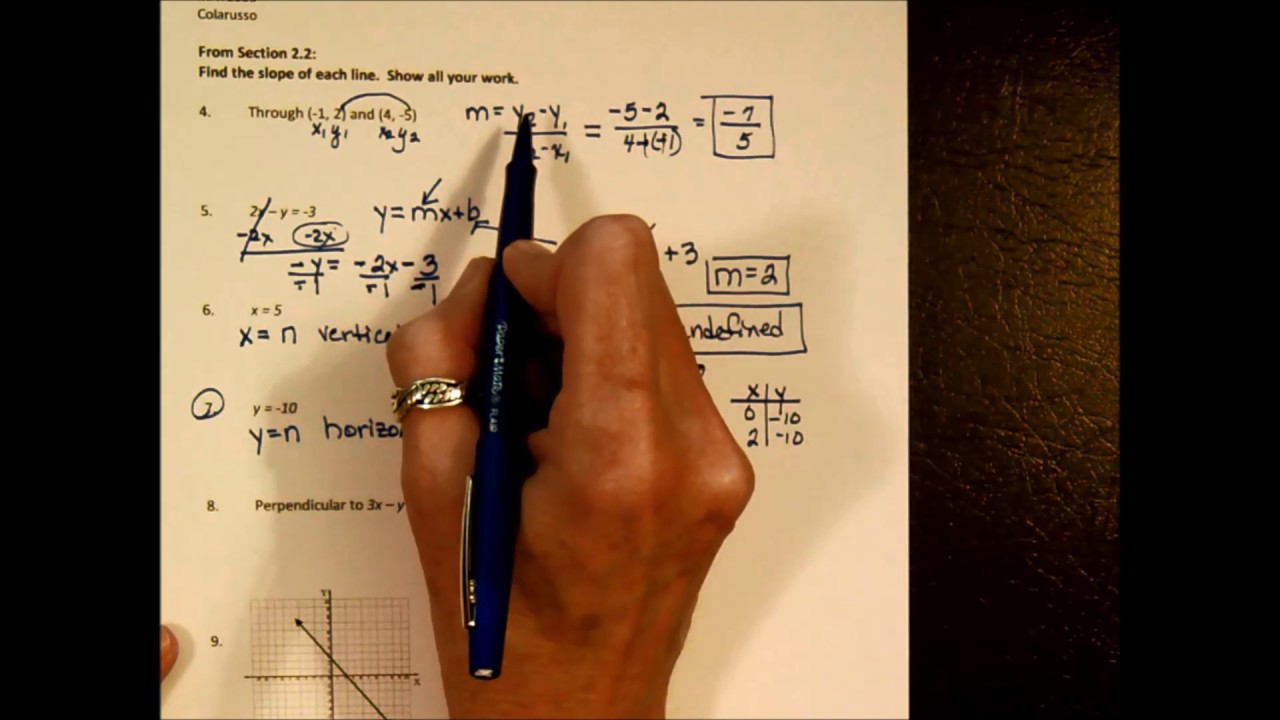 Colarusso
From Section 2.2:
Find the slope of each line. Show all your work.
4. Through (-1, 2) and (4, -5)
x₁ y₁ x₂ y₂
m = y₂ - y₁ = -5 - 2 = -7
2 - x₁ 4 + (+1) 5
5. 2x - y = -3 y = mx + b
-2x -2x
-y = -2x - 3 +3 m = 2
-1 -1 -1
6. x = 5
x = n ndefined
7. y = -10 x y
y = n 0 -10
2 -10
8. Perpendicular to 3x – y
9.
Y
x